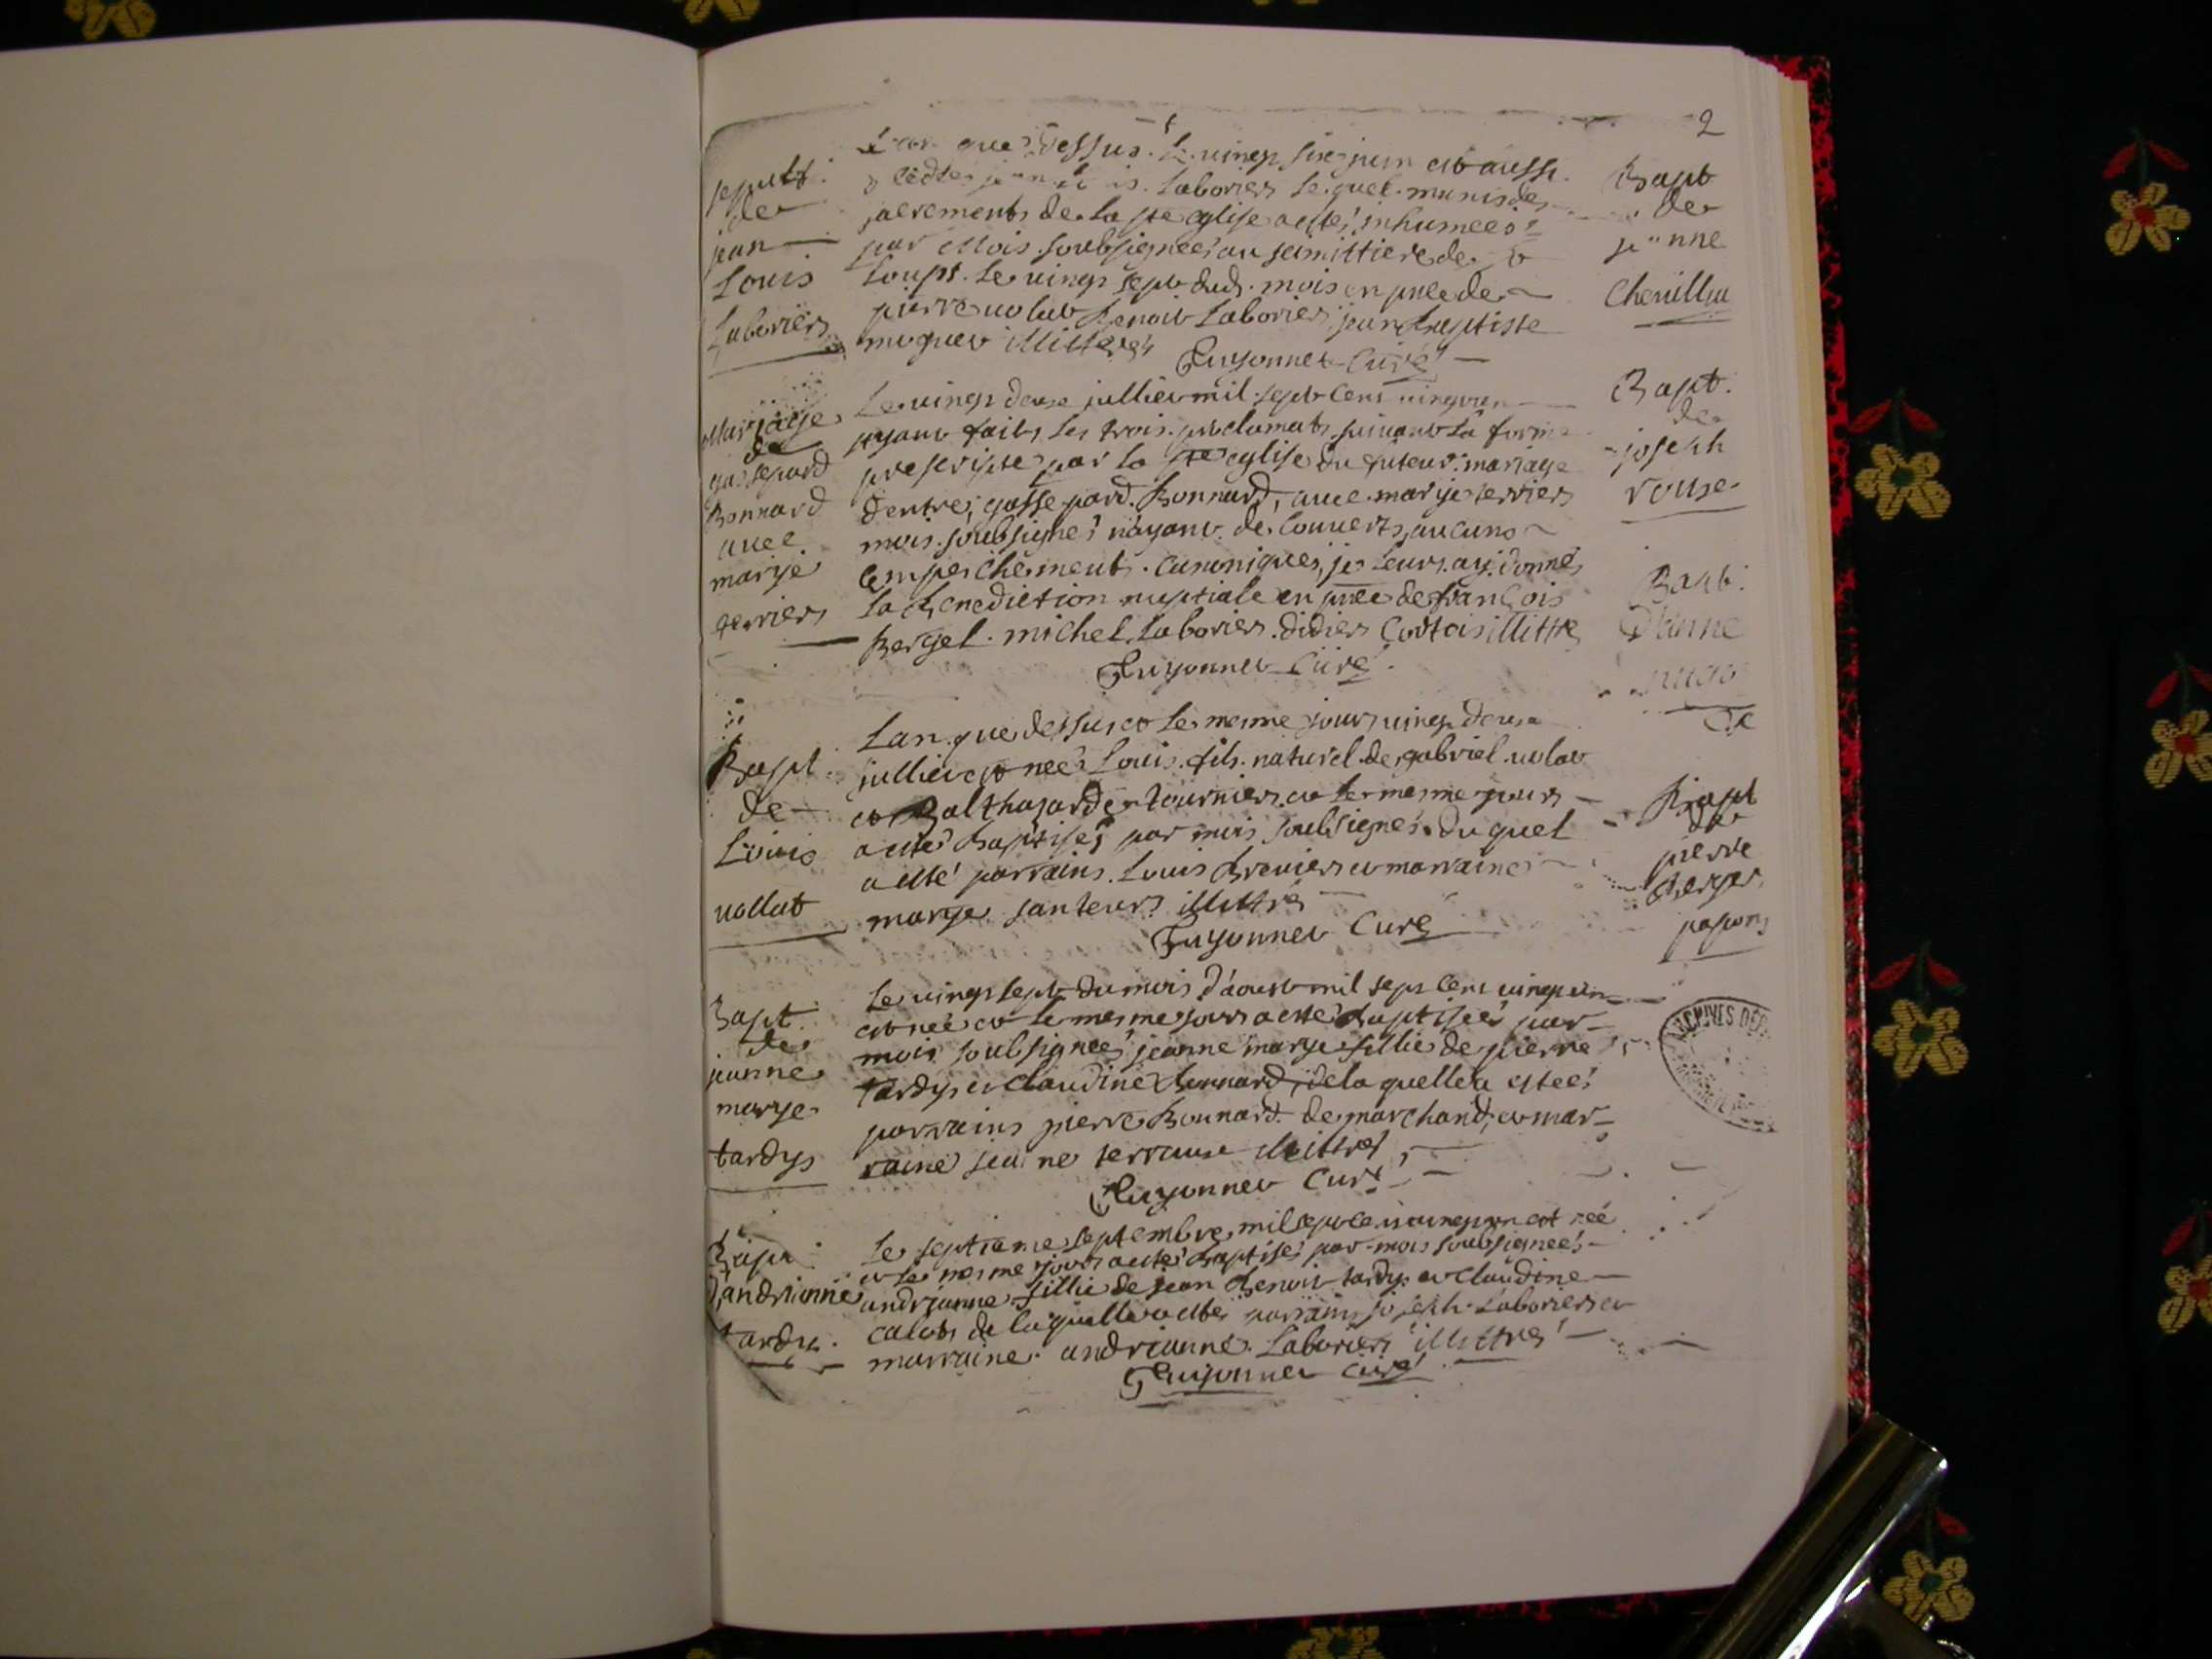 2
que dessus. le vingt six juin est aussi
jean Louis Laboriers lequel munis des
sacrements de la ste eglise a esté inhumeé
par Mois soubsigneé au semittiere de st
loup. le vingt sept dud. mois en pnce de
pierre volat benoit Laboriers jean baptiste
muguet illittrés
Guyonnet Curé
sepult.
de
jean
Louis
Laboriers
Le vingt deux julliet mil sept cent vingt un
ayant faits les trois proclamats suivant la forme
prescripte par la ste eglise du futeur mariage
dentre gassepard Bonnard, avec marye terriers
mois soubsigné n'ayant decouverts aucuns
empeschements canoniques, je leurs ay donné
la benediction nuptiale en pnce de françois
Berget michel Laboriers didiers Cortois illittré
Guyonnet Curé
Mariage
de
gassepard
Bonnard
avec
marye
terriers
Lan que dessus et le mesme jours vingt deux
julliet est neé Louis fils naturel de gabriel volat
et Balthasarde tourniers et le mesme jours
a esté Baptisé par mois soubsigné duquel
a esté parrains Louis breniers et marraine
marye santeurs illittré
Guyonnet Curé
Bapt.
de
Louis
vollat
Le vingt sept du mois d'aoust mil sept cent vingt un
est neé et le mesme jours a esté baptiseé par
mois soubsigneé jeanne marye fillie de pierre
tardys et Claudine bonnard, de laquelle a esteé
parrains pierre Bonnard de marchand, et mar-
raine jeanne terrasse illittré
Guyonnet Curé
Bapt.
de
jeanne
marye
tardys
Le septieme septembre mil sept cent vingt un est neé
et le mesme jours a esté baptisé par mois soubsigneé
andrianne fillie de jean benoit tardys et claudine
calots de laquelle a esté parrains joseph Laboriers et
marraine andrianne Laboriers illittré
Guyonnet Curé
Bapt.
d'andrianne
tardys
Bapt
de
jeanne
Chevillia
Bapt.
de
joseph
rouse
Bapt.
D'anne
Bapt
de
pierre
Berger
papon
ARCHIVES DÉP